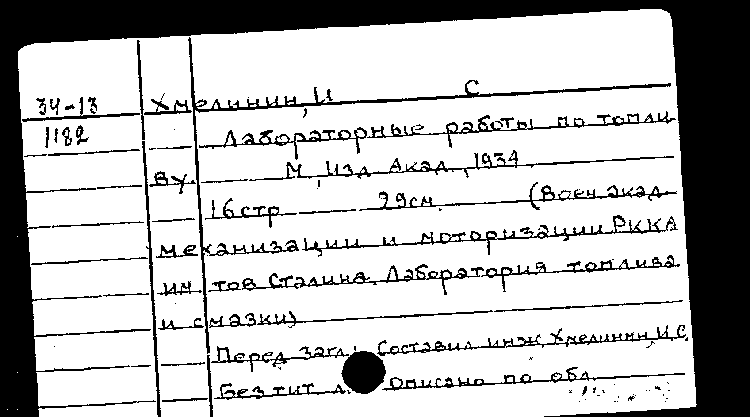 34-13 Хмелинин, И С
1182 Лабораторные работы по топли
ву. М, Изд Акад, 1934
16стр 29см. (Воен. акад.
механизации и моторизации РККА
им тов Сталина. Лаборатория топлива
и смазки)
Перед загл: Составил инж. Хмелинин, И.С.
Без тит л. Описано по обл.